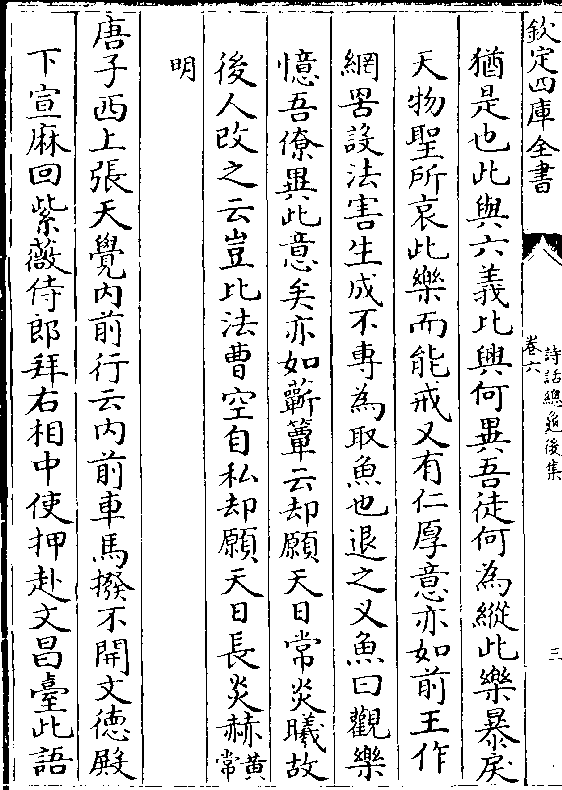 欽定四庫全書
詩話總龜後集
卷六
三
猶是也此與六義比興何異吾徒何為縱此樂暴戾
天物聖所哀此樂而能戒又有仁厚意亦如前王作
網罟設法害生成不專為取魚也退之叉魚曰觀樂
憶吾僚異此意矣亦如蘄簟云却願天日常炎曦故
後人改之云豈比法曹空自私却願天日長炎赫黄
常
明
唐子西上張天覺内前行云内前車馬撥不開文德殿
下宣麻回紫薇侍郎拜右相中使押赴文昌臺此語